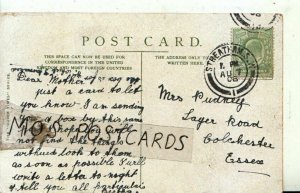 POST CARD.
THIS SPACE CAN NOW BE USED FOR
CORRESPONDENCE IN THE UNITED
KINGDOM
THE ADDRESS ONLY TO BE
WRITTEN HERE.
STREATHAM
AU
08
Dear Mother
just a card to let
you know I am sending
a box by this same
post hope you will
find the things
alright look to them
as soon as possible I will
write a letter to night
& tell you all particulars
Mrs Pudney
Layer Road
Colchester
Essex
NOS POSTCARDS